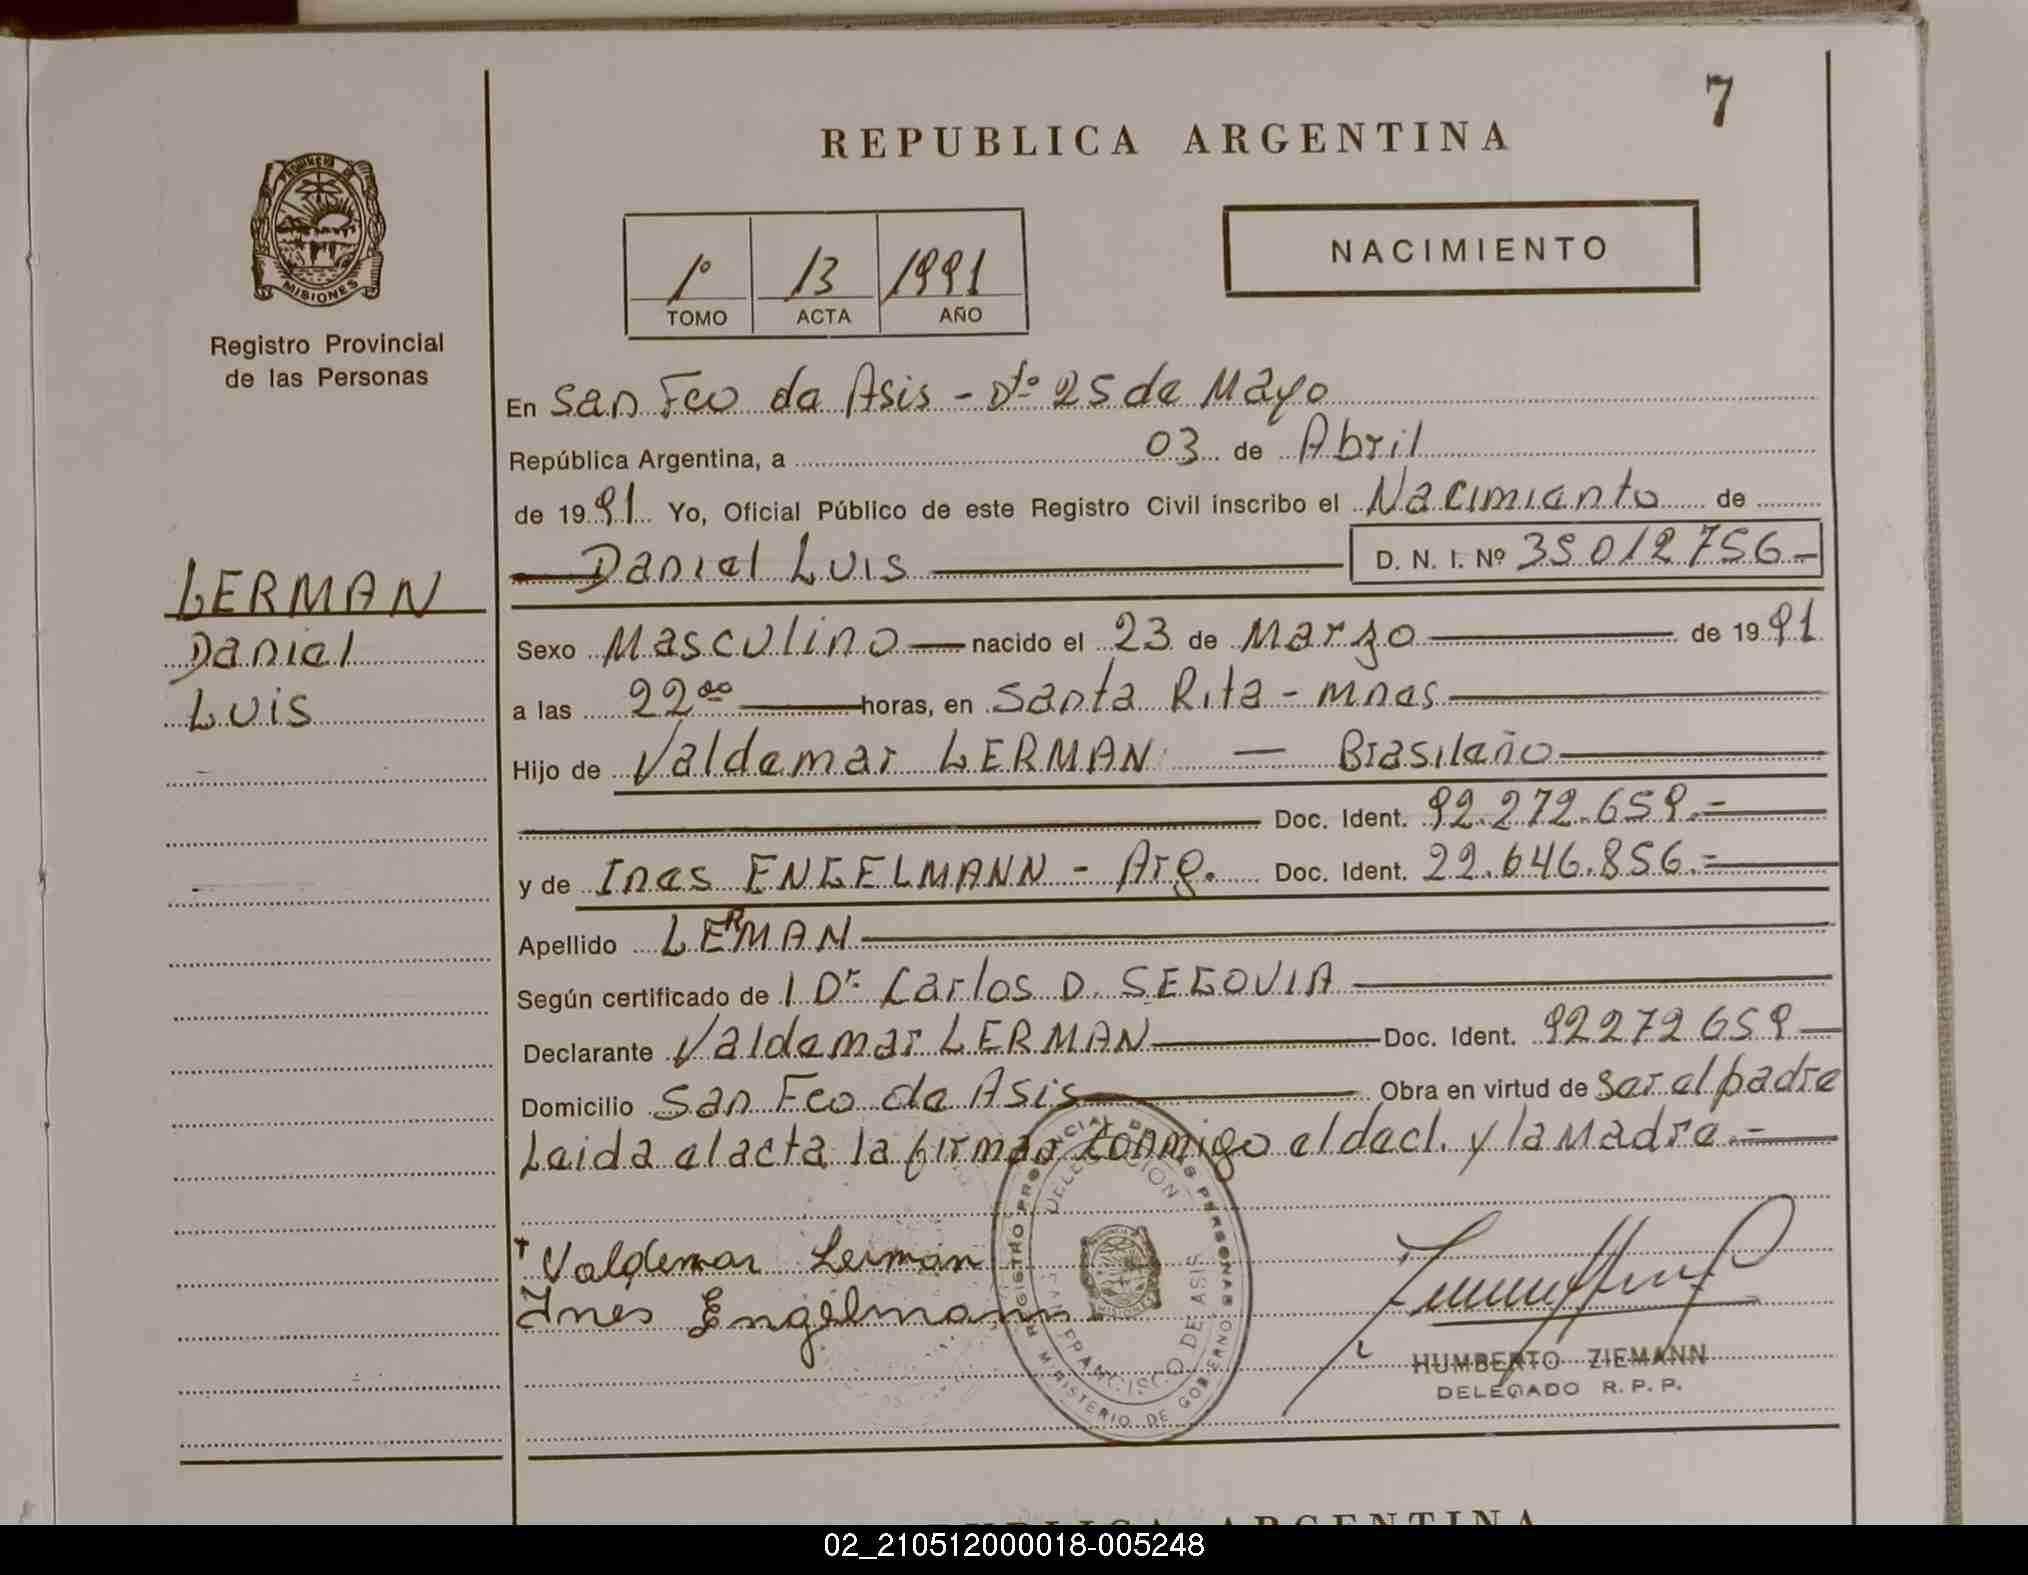 7
REPUBLICA ARGENTINA
NACIMIENTO
1º 13 1991
TOMO ACTA AÑO
PROVINCIA DE
MISIONES
Registro Provincial
de las Personas
LERMAN
Daniel
Luis
En San Fco de Asis - Dto 25 de Mayo
República Argentina, a 03 de Abril
de 1991 Yo, Oficial Público de este Registro Civil inscribo el Nacimiento de
Daniel Luis D. N. I. Nº 35012756.-
Sexo Masculino nacido el 23 de Marzo de 1991
a las 22 00 horas, en Santa Rita - Mnes
Hijo de Valdemar LERMAN — Brasileño
Doc. Ident. 92.272.659.-
y de Ines ENGELMANN - Arg. Doc. Ident. 22.646.856.=
Apellido LERMAN
Según certificado de 1 Dr. Carlos D. SEGOVIA
Declarante Valdemar LERMAN Doc. Ident. 92272659
Domicilio San Fco de Asis Obra en virtud de Ser el padre
Leida el acta la firman conmigo el decl. y la Madre.-
Valdemar Lerman
Ines Engelmann
REGISTRO PROVINCIAL DE LAS PERSONAS
DELEGACION
SAN FRANCISCO DE ASIS
MINISTERIO DE GOBIERNO
HUMBERTO ZIEMANN
DELEGADO R. P. P.
REPUBLICA ARGENTINA
02_210512000018-005248